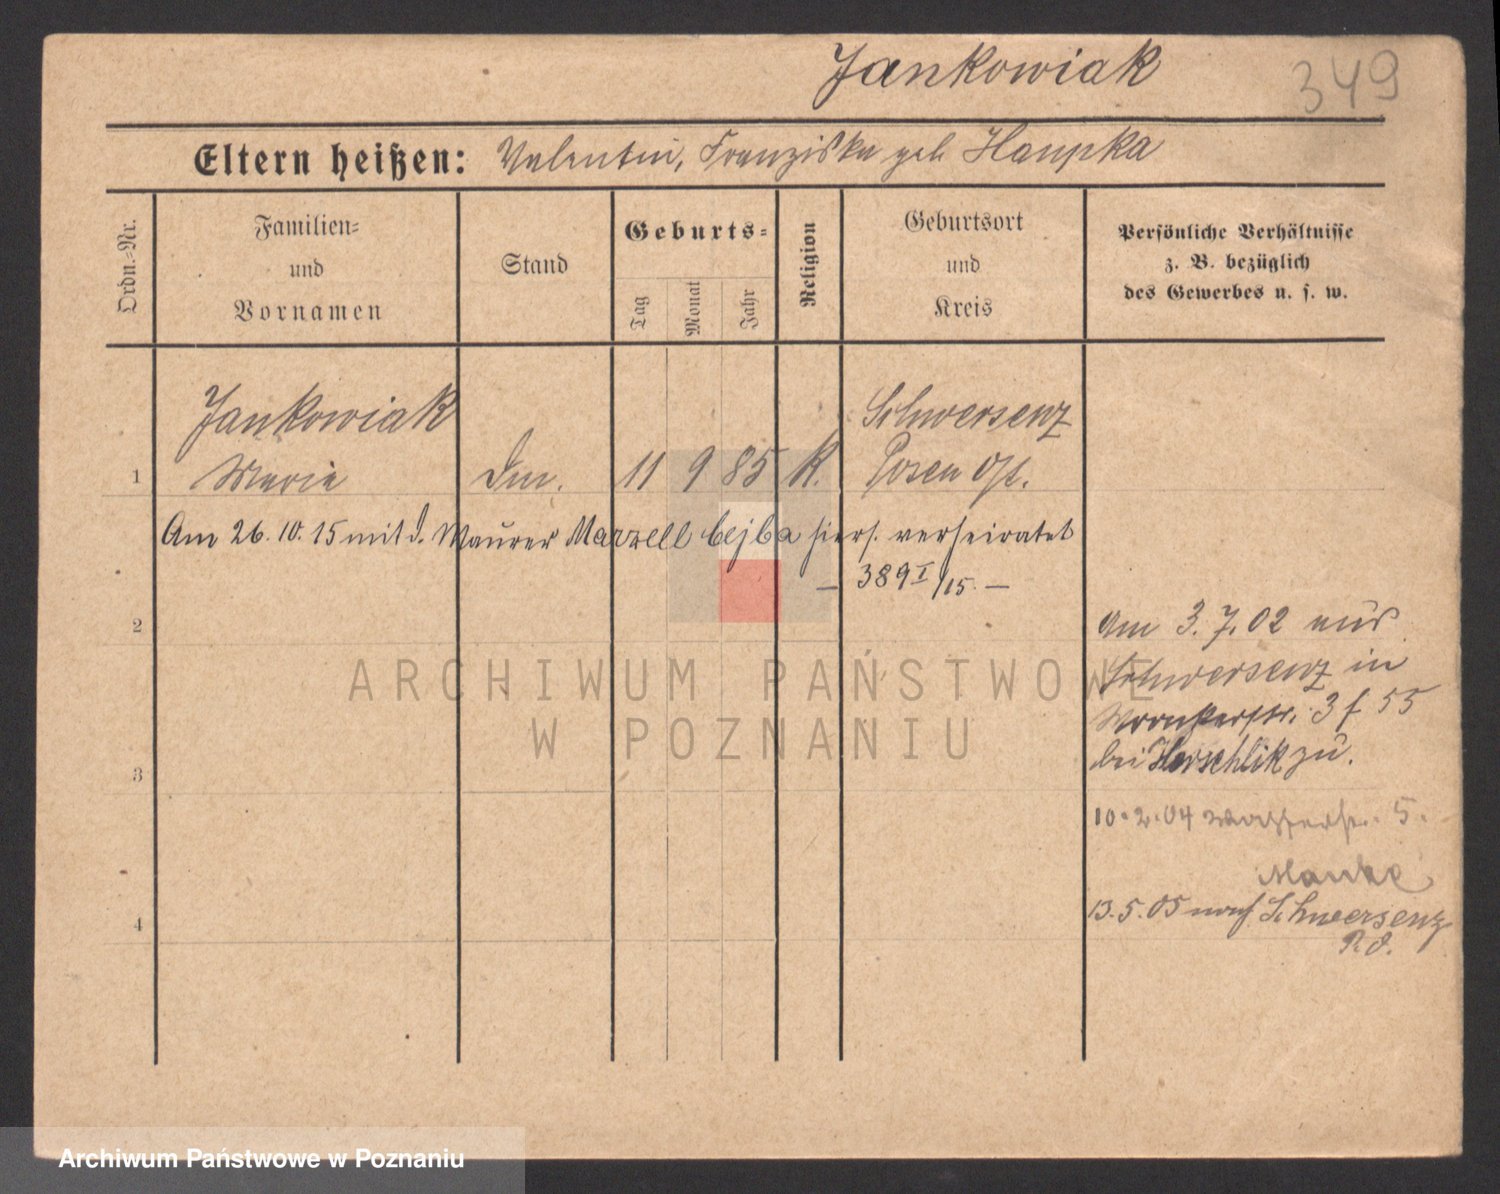 Jankowiak
349
Eltern heißen: Valentin, Franziska geb. Haupka
Ordn.-Nr.
Familien-
und
Vornamen
Stand
Geburts-
Tag
Monat
Jahr
Religion
Geburtsort
und
Kreis
Persönliche Verhältnisse
z. B. bezüglich
des Gewerbes u. s. w.
Jankowiak
Schwersenz
1 Marie 11 9 85 K. Posen Ost.
Am 26. 10. 15 mit d. Maurer Marzell bejba hiers. verheiratet
— 389 I/15. —
2
Am 3. 7. 02 aus
Schwersenz in
Wronkerstr. 3 f 55
bei zu.
3
10.2.04 Wasserstr. 5.
Manke
13.5.05 nach Schwersenz
4
ARCHIWUM PAŃSTWOWE
W POZNANIU
Archiwum Państwowe w Poznaniu